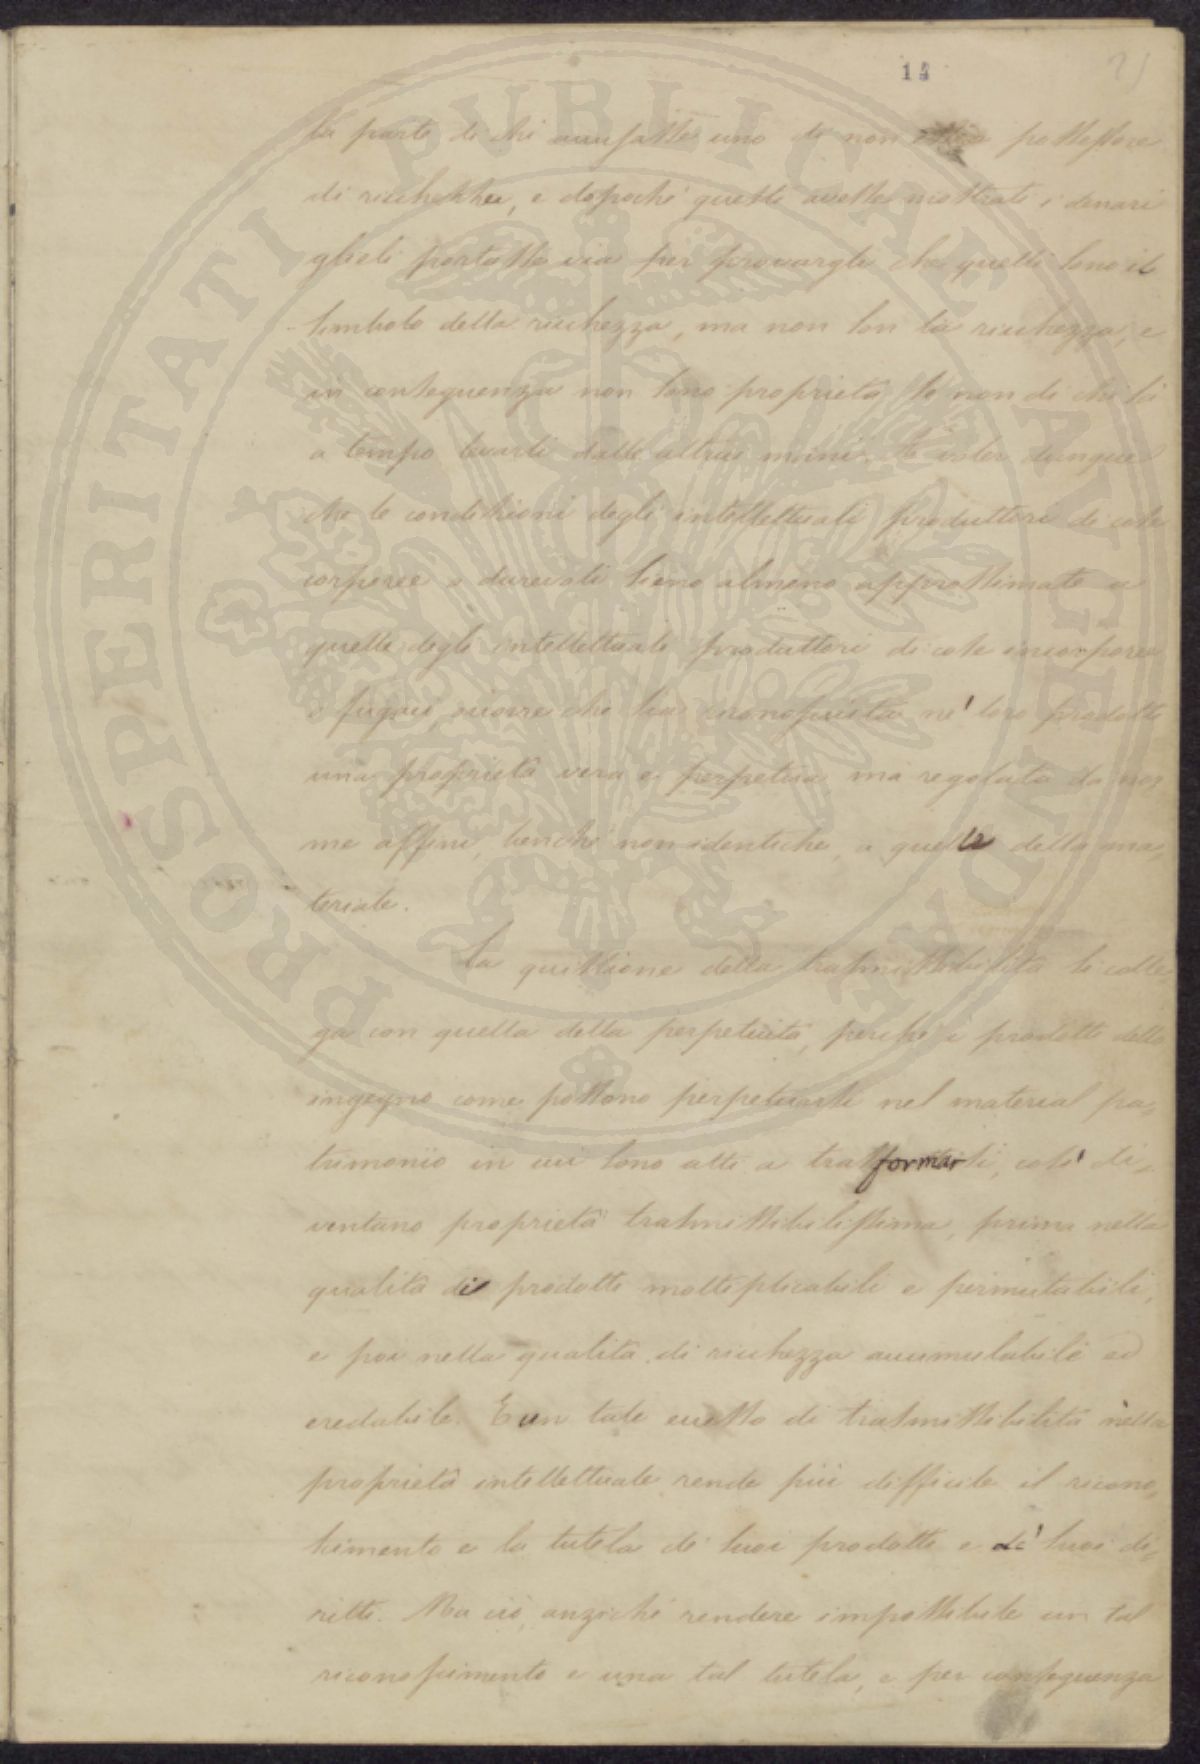 14
21
la parte di chi accusasse uno di non esser possessore
di ricchezza, e dopochè questi avesse mostrato i denari
glieli portasse via per provargli che quelli sono il
simbolo della ricchezza, ma non son la ricchezza, e
in conseguenza non sono proprietà se non di chi fa
a tempo levarli dalle altrui mani. A voler dunque
che le condizioni degli intellettuali produttori di cose
corporee e durevoli sieno almeno approssimate a
quelle degli intellettuali produttori di cose incorporee
e fugaci, occorre che sia riconosciuta ne' loro prodotti
una proprietà vera e perpetua ma regolata da nor
me affini, benchè non identiche, a quelle della ma,
teriale.
La quistione della trasmissibilità si colle
ga con quella della perpetuità, perchè i prodotti dello
ingegno come possono perpetuarsi nel material pa,
trimonio in cui sono atti a trasformarsi, così di,
ventano proprietà trasmissibilissima, prima nella
qualità di prodotti moltiplicabili e permutabili,
e poi nella qualità di ricchezza accumulabile ed
eredabile. E un tale eccesso di trasmissibilità nella
proprietà intellettuale rende più difficile il ricono,
scimento e la tutela di suoi prodotti e de' suoi di,
ritti. Ma ciò, anzichè rendere impossibile un tal
riconoscimento e una tal tutela, e per conseguenza
PROSPERITATI PVBLICAE AVGENDAE